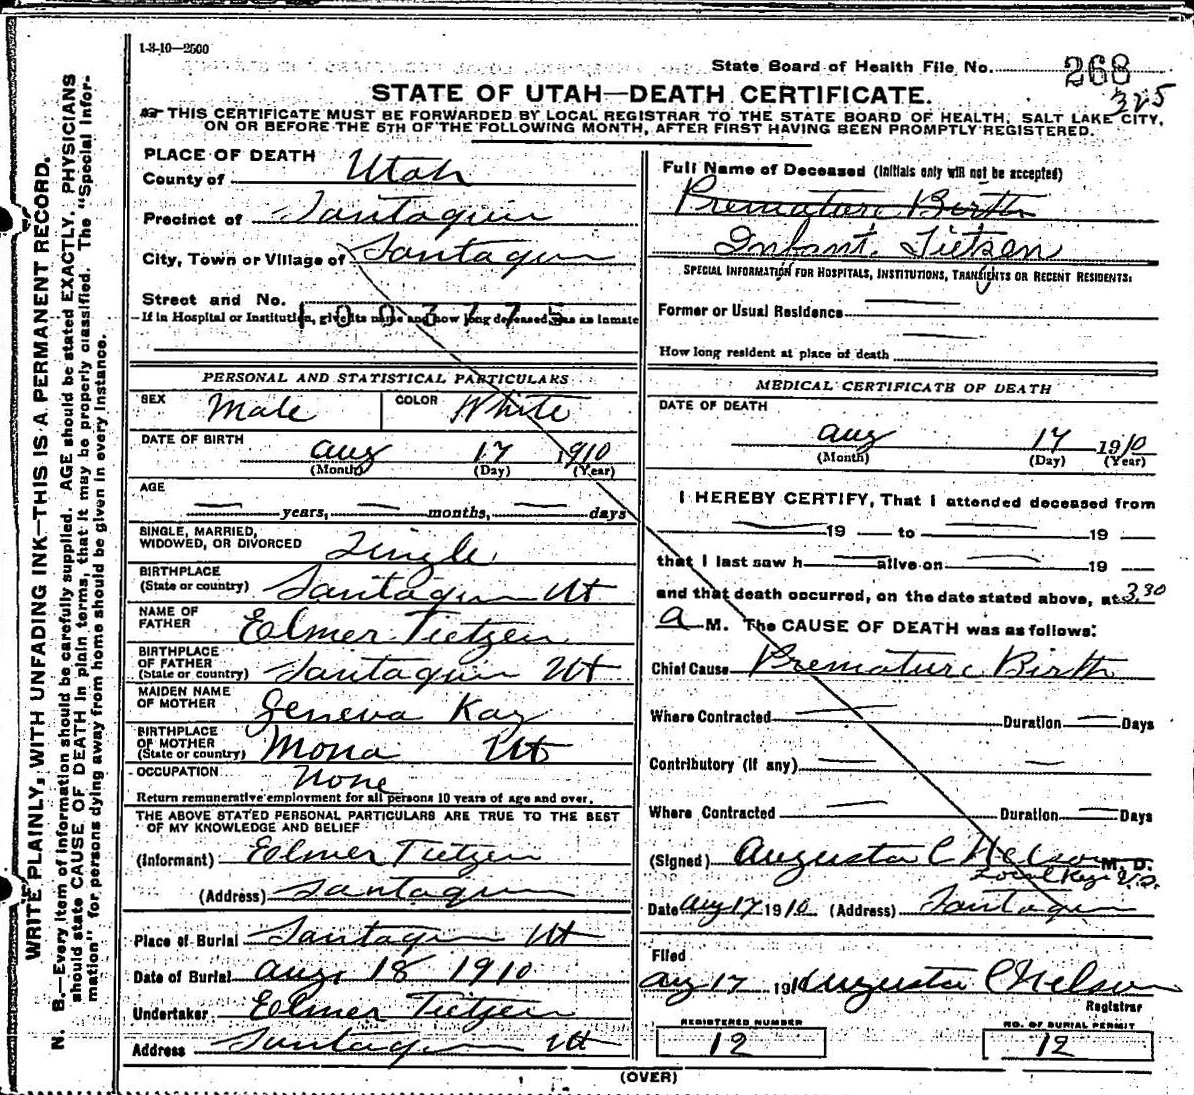 1-3-10—2500
State Board of Health File No. 268
325
STATE OF UTAH—DEATH CERTIFICATE.
THIS CERTIFICATE MUST BE FORWARDED BY LOCAL REGISTRAR TO THE STATE BOARD OF HEALTH, SALT LAKE CITY,
ON OR BEFORE THE 5TH OF THE FOLLOWING MONTH, AFTER FIRST HAVING BEEN PROMPTLY REGISTERED.
WRITE PLAINLY, WITH UNFADING INK—THIS IS A PERMANENT RECORD.
N. B.—Every item of information should be carefully supplied. AGE should be stated EXACTLY. PHYSICIANS
should state CAUSE OF DEATH in plain terms, that it may be properly classified. The "Special Infor-
mation" for persons dying away from home should be given in every instance.
PLACE OF DEATH
County of Utah
Precinct of Santaquin
City, Town or Village of Santaquin
Street and No.
1003775
If in Hospital or Institution, give its name and how long deceased was an inmate
PERSONAL AND STATISTICAL PARTICULARS
SEX Male COLOR White
DATE OF BIRTH
Aug 17 1910
(Month) (Day) (Year)
AGE
— years, — months, — days
SINGLE, MARRIED,
WIDOWED, OR DIVORCED Single
BIRTHPLACE
(State or country) Santaquin Ut
NAME OF
FATHER Eelmer Tietzen
BIRTHPLACE
OF FATHER
(State or country) Santaquin Ut
MAIDEN NAME
OF MOTHER Geneva Kay
BIRTHPLACE
OF MOTHER
(State or country) Mona Ut
OCCUPATION None
Return remunerative employment for all persons 10 years of age and over.
THE ABOVE STATED PERSONAL PARTICULARS ARE TRUE TO THE BEST
OF MY KNOWLEDGE AND BELIEF
(Informant) Eelmer Tietzen
(Address) Santaquin
Place of Burial Santaquin Ut
Date of Burial Aug, 18 1910
Undertaker Eelmer Tietzen
Address Santaquin Ut
Full Name of Deceased (Initials only will not be accepted)
Premature Birth
Infant. Tietzen
SPECIAL INFORMATION FOR HOSPITALS, INSTITUTIONS, TRANSIENTS OR RECENT RESIDENTS:
Former or Usual Residence —
How long resident at place of death —
MEDICAL CERTIFICATE OF DEATH
DATE OF DEATH
Aug 17 1910
(Month) (Day) (Year)
I HEREBY CERTIFY, That I attended deceased from
— 19 — to — 19 —
that I last saw h — alive on — 19 —
and that death occurred, on the date stated above, at 3.30
a M. The CAUSE OF DEATH was as follows:
Chief Cause Premature Birth
Where Contracted — Duration — Days
Contributory (if any) — —
Where Contracted — Duration — Days
(Signed) Augusta C Nelson M. D.
Local Reg
Date Aug 17 1910 (Address) Santaquin
Filed
Aug 17 1910 Augusta C Nelson
Registrar
REGISTERED NUMBER
12
NO. OF BURIAL PERMIT
12
(OVER)